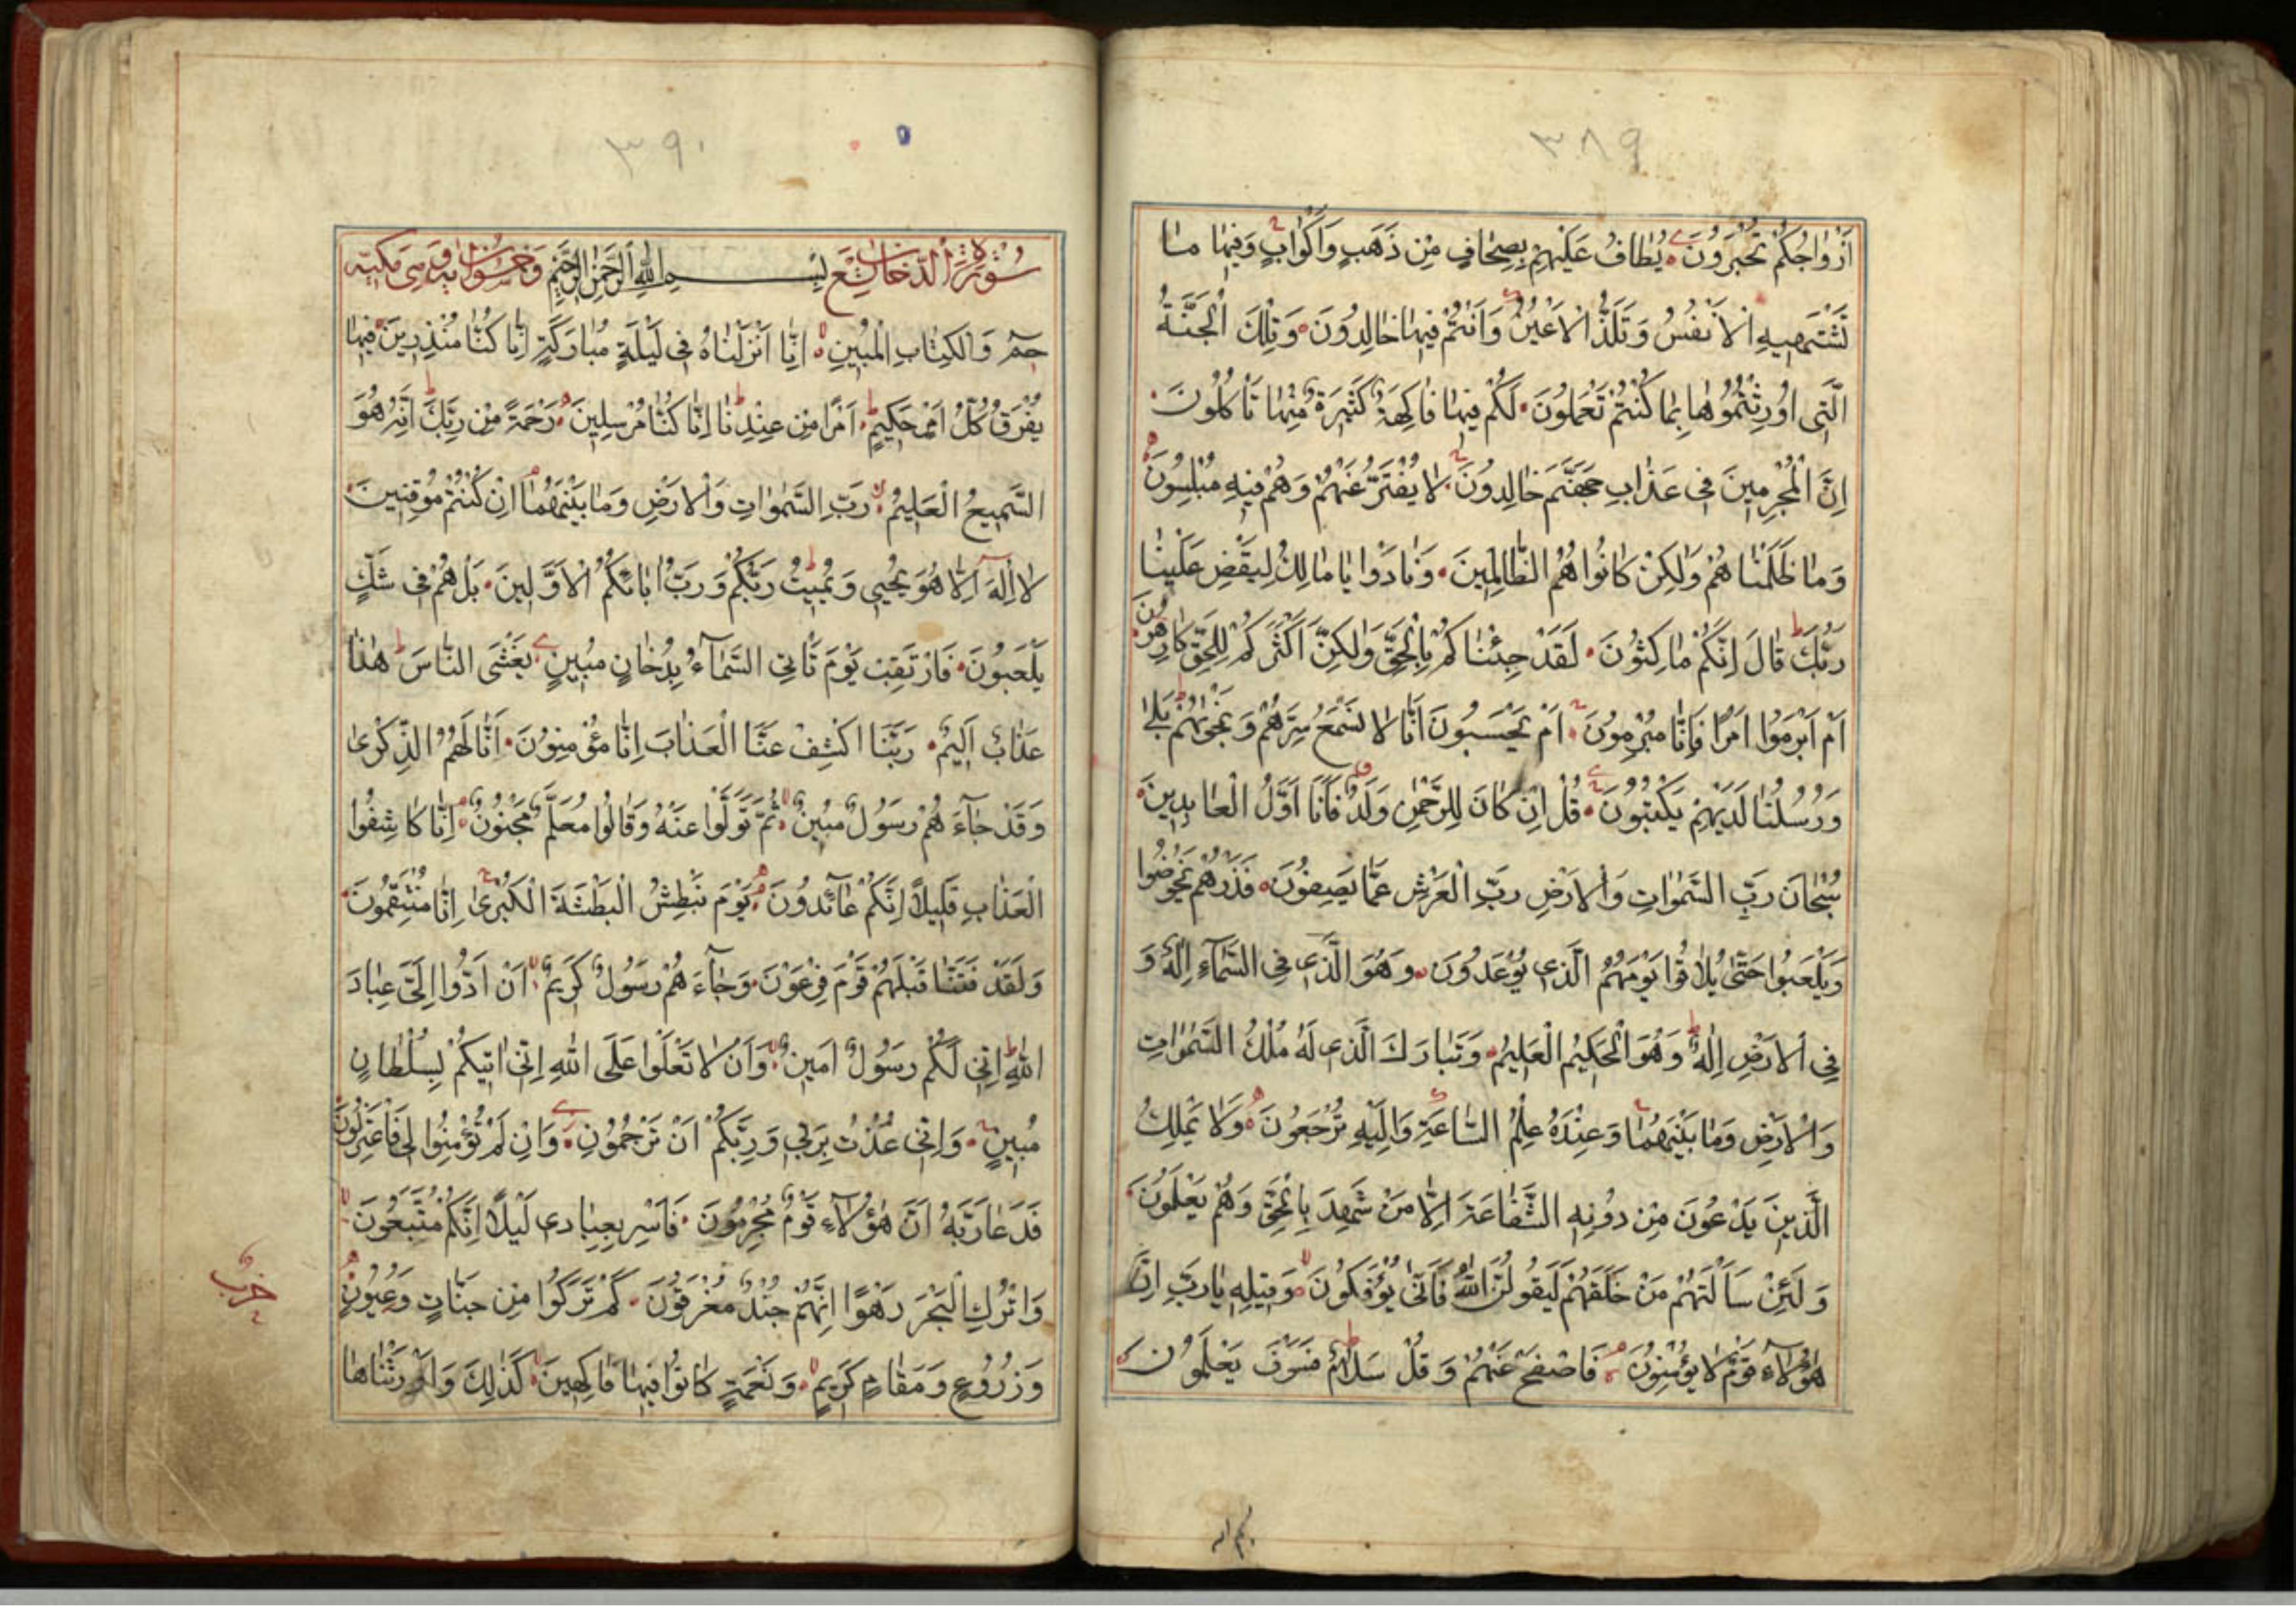 ٣٨٩
اَزْوَاجُكُمْ تُحْبَرُونَ يُطَافُ عَلَيْهِمْ بِصِحَافٍ مِنْ ذَهَبٍ وَاَكْوَابٍ وَفِيهَا مَا
تَشْتَهِيهِ الْاَنْفُسُ وَتَلَذُّ الْاَعْيُنُ وَاَنْتُمْ فِيهَا خَالِدُونَ وَتِلْكَ الْجَنَّةُ
الَّتِى اُورِثْتُمُوهَا بِمَا كُنْتُمْ تَعْمَلُونَ لَكُمْ فِيهَا فَاكِهَةٌ كَثِيرَةٌ مِنْهَا تَأْكُلُونَ
اِنَّ الْمُجْرِمِينَ فِى عَذَابِ جَهَنَّمَ خَالِدُونَ لَا يُفَتَّرُ عَنْهُمْ وَهُمْ فِيهِ مُبْلِسُونَ
وَمَا ظَلَمْنَاهُمْ وَلٰكِنْ كَانُوا هُمُ الظَّالِمِينَ وَنَادَوْا يَامَالِكُ لِيَقْضِ عَلَيْنَا
رَبُّكَ قَالَ اِنَّكُمْ مَاكِثُونَ لَقَدْ جِئْنَاكُمْ بِالْحَقِّ وَلٰكِنَّ اَكْثَرَكُمْ لِلْحَقِّ كَارِهُونَ
اَمْ اَبْرَمُوا اَمْرًا فَاِنَّا مُبْرِمُونَ اَمْ يَحْسَبُونَ اَنَّا لَا نَسْمَعُ سِرَّهُمْ وَنَجْوٰيهُمْ بَلٰى
وَرُسُلُنَا لَدَيْهِمْ يَكْتُبُونَ قُلْ اِنْ كَانَ لِلرَّحْمٰنِ وَلَدٌ فَاَنَا اَوَّلُ الْعَابِدِينَ
سُبْحَانَ رَبِّ السَّمٰوَاتِ وَالْاَرْضِ رَبِّ الْعَرْشِ عَمَّا يَصِفُونَ فَذَرْهُمْ يَخُوضُوا
وَيَلْعَبُوا حَتّٰى يُلَاقُوا يَوْمَهُمُ الَّذِى يُوعَدُونَ وَهُوَ الَّذِى فِى السَّمَآءِ اِلٰهٌ وَ
فِى الْاَرْضِ اِلٰهٌ وَهُوَ الْحَكِيمُ الْعَلِيمُ وَتَبَارَكَ الَّذِى لَهُ مُلْكُ السَّمٰوَاتِ
وَالْاَرْضِ وَمَا بَيْنَهُمَا وَعِنْدَهُ عِلْمُ السَّاعَةِ وَاِلَيْهِ تُرْجَعُونَ وَلَا يَمْلِكُ
الَّذِينَ يَدْعُونَ مِنْ دُونِهِ الشَّفَاعَةَ اِلَّا مَنْ شَهِدَ بِالْحَقِّ وَهُمْ يَعْلَمُونَ
وَلَئِنْ سَاَلْتَهُمْ مَنْ خَلَقَهُمْ لَيَقُولُنَّ اللّٰهُ فَاَنّٰى يُؤْفَكُونَ وَقِيلِهِ يَارَبِّ اِنَّ
هٰؤُلَآءِ قَوْمٌ لَا يُؤْمِنُونَ فَاصْفَحْ عَنْهُمْ وَقُلْ سَلَامٌ فَسَوْفَ يَعْلَمُونَ
٣٩٠
سُورَةُ الدُّخَانِ تِسْعٌ بِسْمِ اللّٰهِ الرَّحْمٰنِ الرَّحِيمِ وَخَمْسُونَ اٰيَةً وَهِىَ مَكِّيَّة
حٰمٓ وَالْكِتَابِ الْمُبِينِ اِنَّا اَنْزَلْنَاهُ فِى لَيْلَةٍ مُبَارَكَةٍ اِنَّا كُنَّا مُنْذِرِينَ فِيهَا
يُفْرَقُ كُلُّ اَمْرٍ حَكِيمٍ اَمْرًا مِنْ عِنْدِنَا اِنَّا كُنَّا مُرْسِلِينَ رَحْمَةً مِنْ رَبِّكَ اِنَّهُ هُوَ
السَّمِيعُ الْعَلِيمُ رَبِّ السَّمٰوَاتِ وَالْاَرْضِ وَمَا بَيْنَهُمَا اِنْ كُنْتُمْ مُوقِنِينَ
لَا اِلٰهَ اِلَّا هُوَ يُحْيِى وَيُمِيتُ رَبُّكُمْ وَرَبُّ اٰبَائِكُمُ الْاَوَّلِينَ بَلْ هُمْ فِى شَكٍّ
يَلْعَبُونَ فَارْتَقِبْ يَوْمَ تَأْتِى السَّمَآءُ بِدُخَانٍ مُبِينٍ يَغْشَى النَّاسَ هٰذَا
عَذَابٌ اَلِيمٌ رَبَّنَا اكْشِفْ عَنَّا الْعَذَابَ اِنَّا مُؤْمِنُونَ اَنّٰى لَهُمُ الذِّكْرٰى
وَقَدْ جَآءَهُمْ رَسُولٌ مُبِينٌ ثُمَّ تَوَلَّوْا عَنْهُ وَقَالُوا مُعَلَّمٌ مَجْنُونٌ اِنَّا كَاشِفُوا
الْعَذَابِ قَلِيلًا اِنَّكُمْ عَآئِدُونَ يَوْمَ نَبْطِشُ الْبَطْشَةَ الْكُبْرٰى اِنَّا مُنْتَقِمُونَ
وَلَقَدْ فَتَنَّا قَبْلَهُمْ قَوْمَ فِرْعَوْنَ وَجَآءَهُمْ رَسُولٌ كَرِيمٌ اَنْ اَدُّوا اِلَىَّ عِبَادَ
اللّٰهِ اِنِّى لَكُمْ رَسُولٌ اَمِينٌ وَاَنْ لَا تَعْلُوا عَلَى اللّٰهِ اِنِّى اٰتِيكُمْ بِسُلْطَانٍ
مُبِينٍ وَاِنِّى عُذْتُ بِرَبِّى وَرَبِّكُمْ اَنْ تَرْجُمُونِ وَاِنْ لَمْ تُؤْمِنُوا لِى فَاعْتَزِلُونِ
فَدَعَا رَبَّهُ اَنَّ هٰؤُلَآءِ قَوْمٌ مُجْرِمُونَ فَاَسْرِ بِعِبَادِى لَيْلًا اِنَّكُمْ مُتَّبَعُونَ
وَاتْرُكِ الْبَحْرَ رَهْوًا اِنَّهُمْ جُنْدٌ مُغْرَقُونَ كَمْ تَرَكُوا مِنْ جَنَّاتٍ وَعُيُونٍ
وَزُرُوعٍ وَمَقَامٍ كَرِيمٍ وَنَعْمَةٍ كَانُوا فِيهَا فَاكِهِينَ كَذٰلِكَ وَاَوْرَثْنَاهَا
حزب